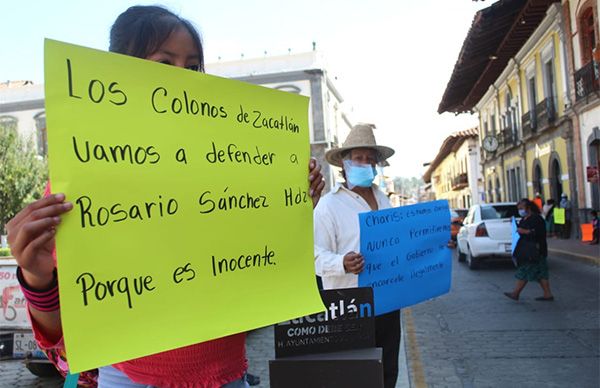 Los Colonos de Zacatlán
Vamos a defender a
Rosario Sánchez Hdz
Porque es Inocente.
Charis: estamos
Nunca Permitiremos
que el Gobierno
encarcele ilegalmente
Zacatlán
COMO DEBE SER
H. AYUNTAMIENTO